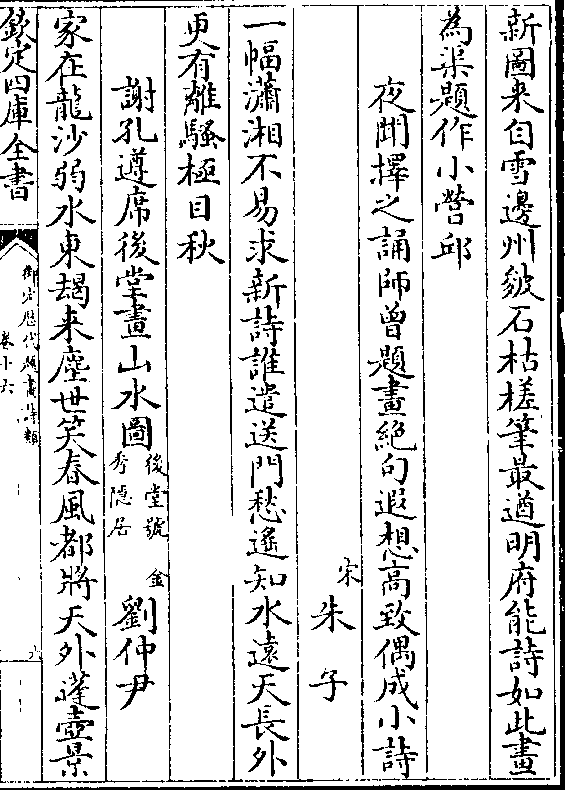 新圖來自雪邊州皴石枯槎筆最遒明府能詩如此畫
為渠題作小營邱
夜聞擇之誦師曾題畫絕句遐想高致偶成小詩
宋朱子
一幅瀟湘不易求新詩誰遣送門愁遙知水遠天長外
更有離騷極目秋
謝孔遵席後堂畫山水圖
後堂號
秀隱居
金劉仲尹
家在龍沙弱水東朅來塵世笑春風都將天外蓬壺景
欽定四庫全書
御定歷代題畫詩類
卷十六
八